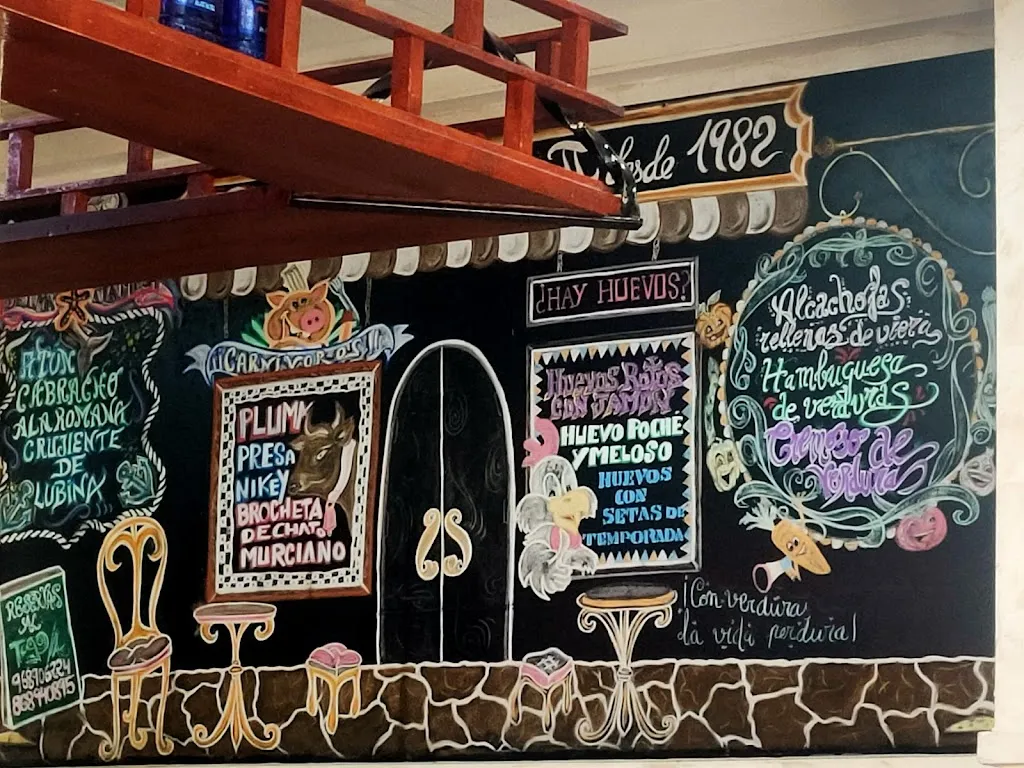 desde 1982
ATÚN
CABRACHO
A LA ROMANA
CRUJIENTE
DE
LUBINA
RESERVAS
AL
¡CARNÍVOROS!!
PLUMA
PRESA
NIKEY
BROCHETA
DE CHATO
MURCIANO
¿HAY HUEVOS?
HUEVOS ROTOS
CON JAMÓN
HUEVO POCHÉ
Y MELOSO
HUEVOS
CON
SETAS DE
TEMPORADA
Alcachofas
rellenas de vieiras
Hamburguesa
de verduras
Cremoso de
verdura
¡Con verdura,
la vida perdura!